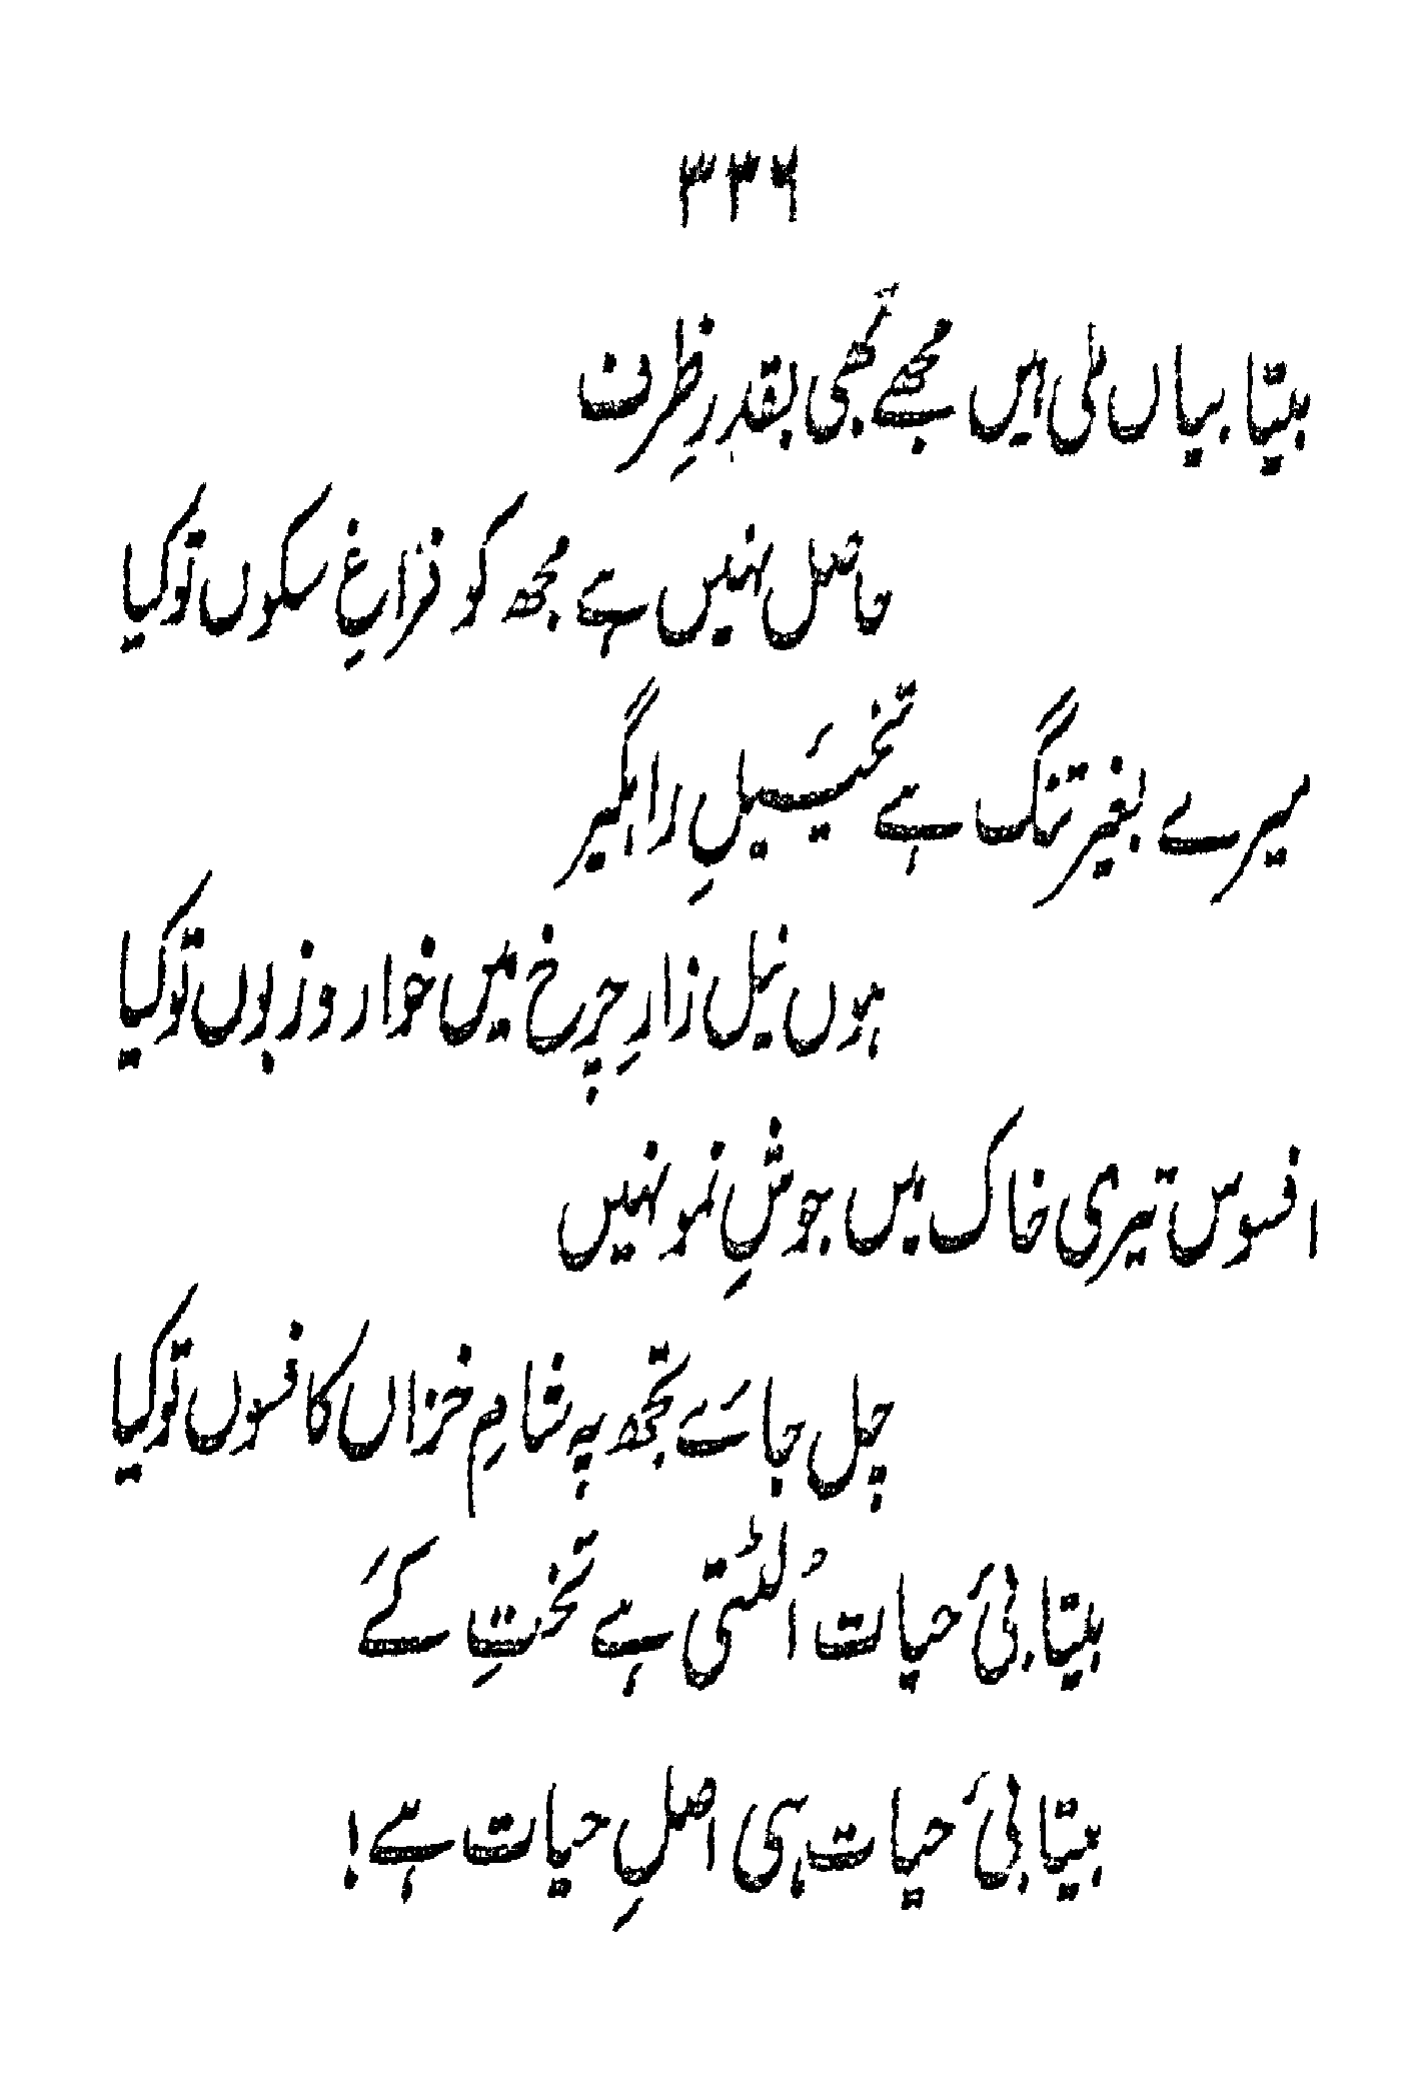 ۳۳۶
بیتابیاں ملی ہیں مجھے بھی بقدرِ ظرف
حاصل نہیں ہے مجھ کو فراغِ سکوں تو کیا
میرے بغیر تنگ ہے تخیَیلِ راہگیر
ہوں نیل زارِ چرخ میں خوار و زبوں تو کیا
افسوس تیری خاک میں جوشِ نمو نہیں
چل جائے تجھ پہ شامِ خزاں کا فسوں تو کیا
بیتابیٔ حیات اُلٹتی ہے تختِ کَے
بیتابیٔ حیات ہی اصلِ حیات ہے!